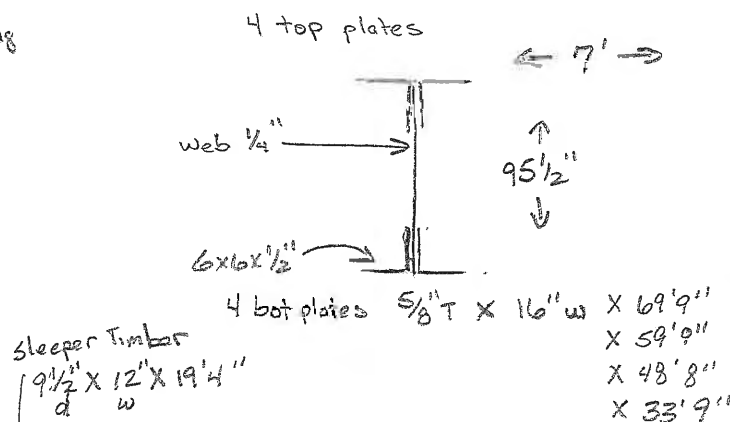 4 top plates
← 7' →
web 1/4"
95 1/2"
6x6x1/2"
4 bot plates 5/8" T X 16" w X 69'9"
X 59'9"
X 48'8"
X 33'9"
sleeper Timber
9 1/2" X 12" X 19'4"
d w